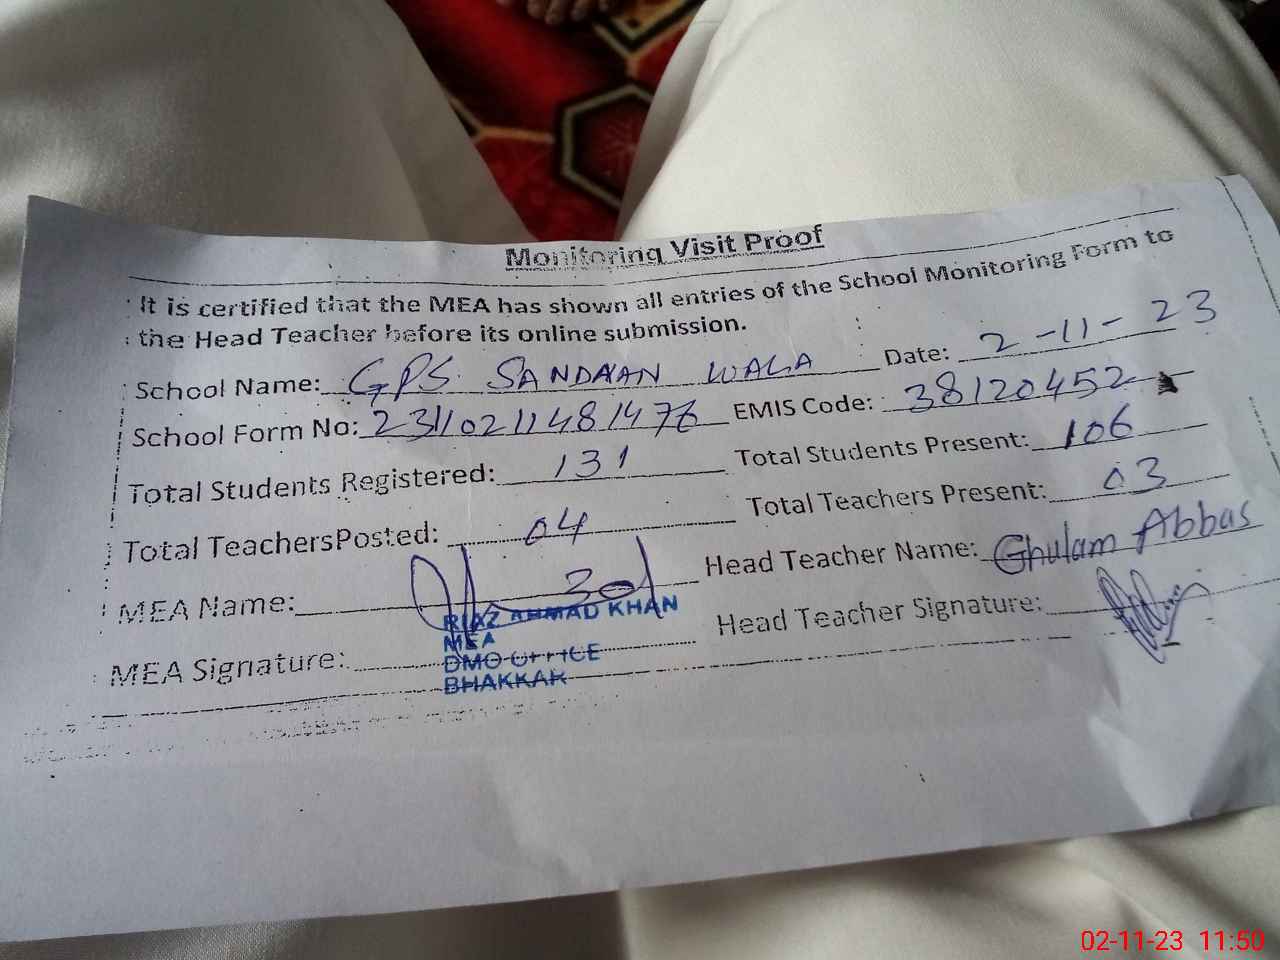 Monitoring Visit Proof
It is certified that the MEA has shown all entries of the School Monitoring Form to
the Head Teacher before its online submission.
School Name: GPS SANDAAN WALA Date: 2-11-23
School Form No: 2311021148 1476 EMIS Code: 38120452
Total Students Registered: 131 Total Students Present: 106
Total TeachersPosted: 04 Total Teachers Present: 03
MEA Name: Head Teacher Name: Ghulam Abbas
RIAZ AHMAD KHAN
MEA
MEA Signature: Head Teacher Signature:
DMO OFFICE
BHAKKAR
02-11-23 11:50